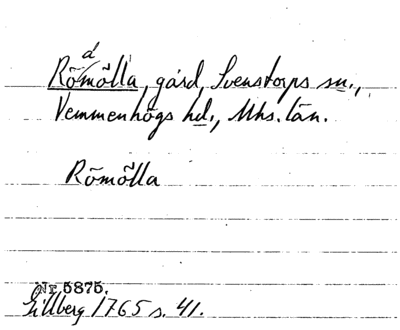 Rödmölla, gård, Svenstorps sn.,
Vemmenhögs hd., Mhs. län.
Römölla
Nr. 5875.
Gillberg 1765 s. 41.